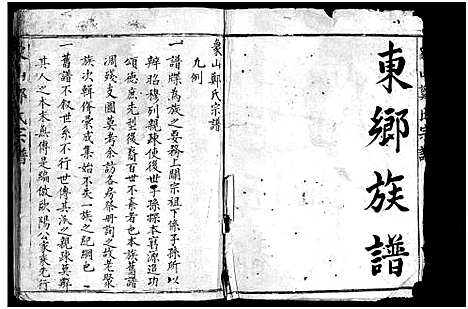 東鄉族譜
象山鄭氏宗譜
凡例
一譜牒為族之要務上關宗祖下條子孫所以
辨昭穆列親疎使後世子孫探本窮源追功
頌德庶先靈歷百世不泯者也本族舊譜
凋殘支圖莫考余訪各房祭冊詢之故老聚
族次輯修彙成集始不失一族之紀綱也
一舊譜不叙世系不行世傳其派之親疎莫辨
其人之本末無傳是編倣歐陽公蘇先行